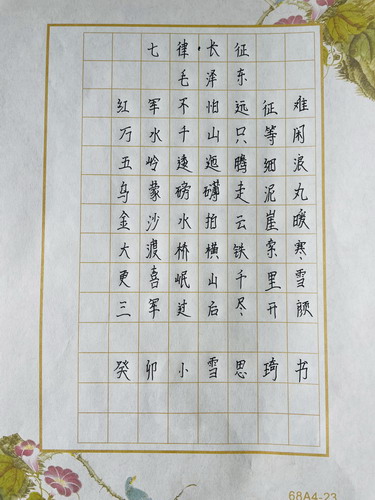 七律·长征
毛泽东
红军不怕远征难
万水千山只等闲
五岭逶迤腾细浪
乌蒙磅礴走泥丸
金沙水拍云崖暖
大渡桥横铁索寒
更喜岷山千里雪
三军过后尽开颜
癸卯小雪思琦书
68A4-23